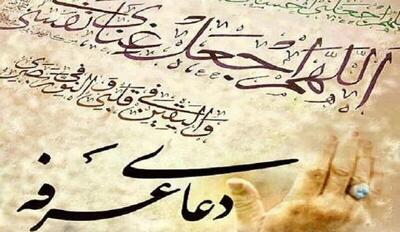 اَللّهُمَّ اجْعَلْ غِنایَ فی نَفْسی
وَالْیَقینَ فی قَلْبی وَ النُّورَ فی بَصَری
دعای عرفه